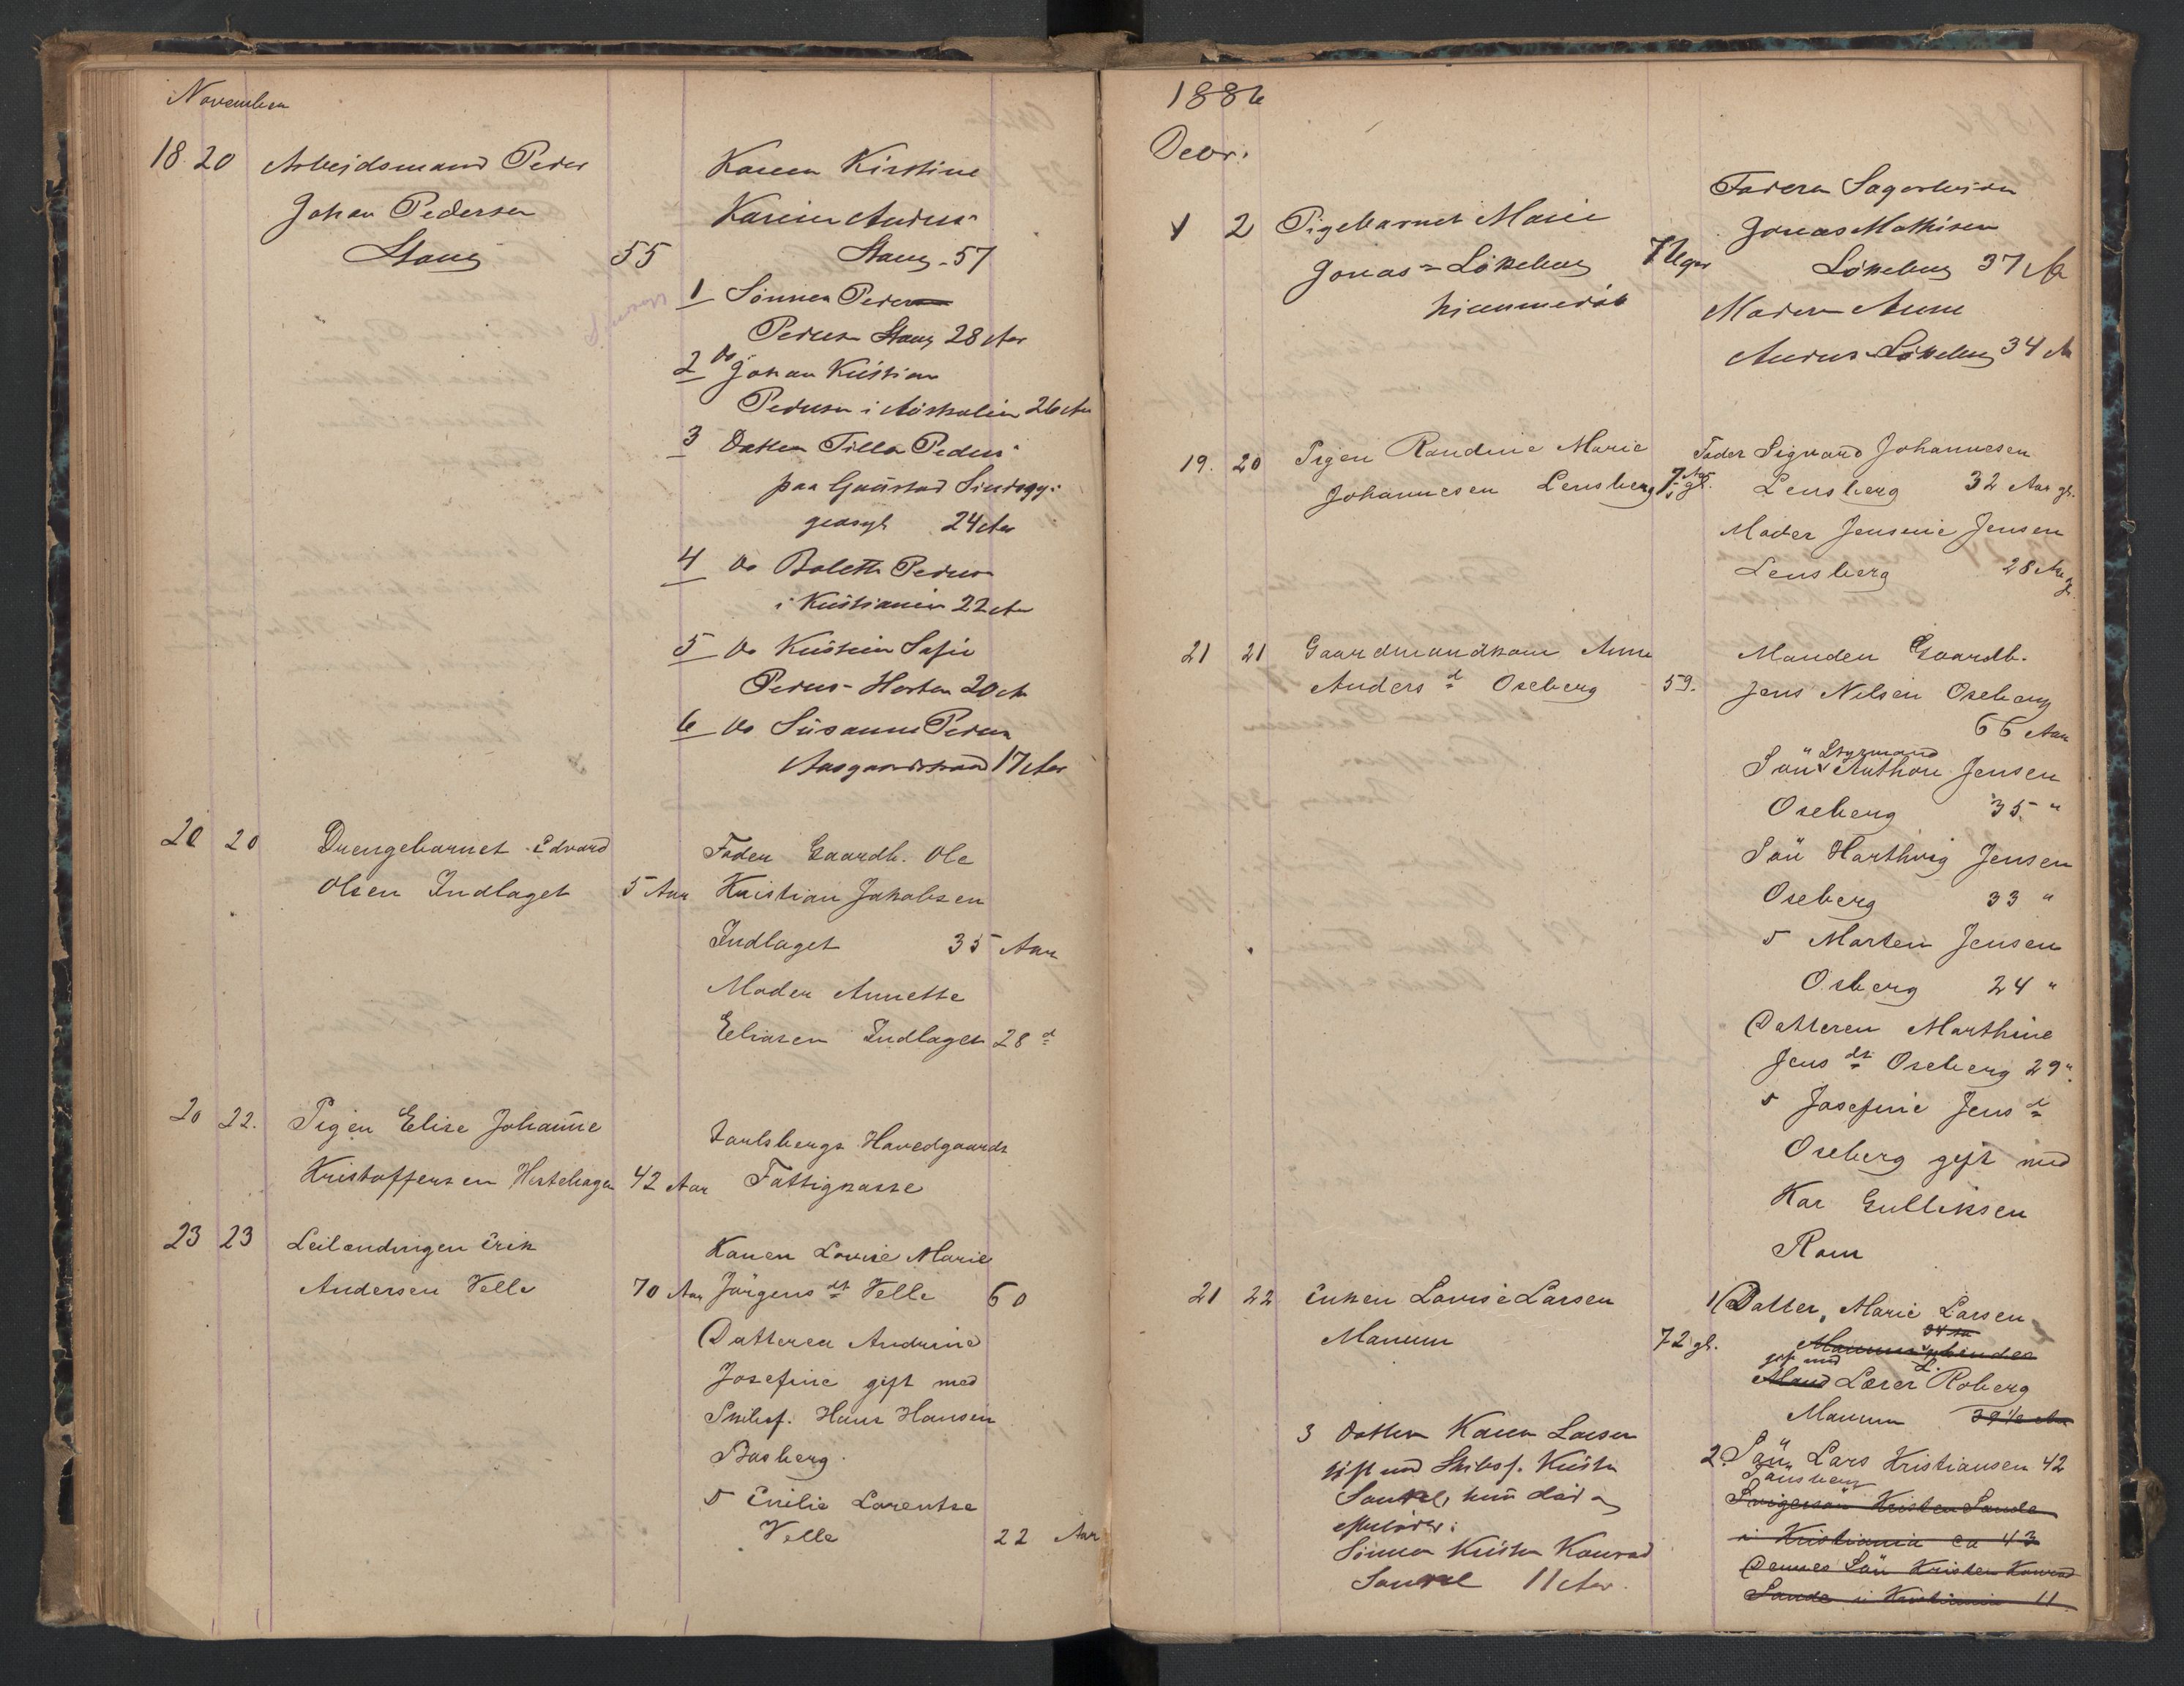 November
18 20 Arbeidsmand Peder
Johan Pedersen
Stang 55
Konen Kirstine
Karine Andrea
Stang - 57
1 Sønnen Peder
Peders Stang 28 Aar
2 do Johan Kristian
Pedersen i Australien 26 Aar
3 Datter Tilla Peders
paa Gaustad Sindssyge
geasyl 24 Aar
4 do Bolette Peders
i Kristiania 22 Aar
5 do Kristine Sofie
Peders - Horten 20 Aar
6 do Susanne Peders
Aasgaardstrand 17 Aar
20 20 Drengebarnet Edvard
Olsen Indlaget 5 Aar
Fader Gaardb. Ole
Kristian Jakobsen
Indlaget 35 Aar
Moder Annette
Eliasen Indlaget 28 d
20 22. Pigen Elise Johanne
Kristoffersen Hortehagen 42 Aar
Jarlsbergs Hovedgaards
Fattigkasse
23 23 Leilændingen Erik
Andersen Velle 70 Aar
Konen Lovise Marie
Jörgens dt Velle 60
Datteren Andrine
Josefine gift med
Skibsf. Hans Hansen
Basberg.
5 Emilie Lorentse
Velle 22 Aar
1886
Decbr.
1 2 Pigebarnet Marie
Jonas = Lökeberg 7 Uger
hjemmedøbt
Faderen Sagarbeider
Jonas Mathisen
Lökeberg 37 Aar
Moderen Anne
Andrea Lökeberg 34 Aar
19. 20 Pigen Randine Marie
Johannesen Lensberg 7 Aar gl.
Fader Sigvard Johannesen
Lensberg 32 Aar gl.
Moder Jensine Jensen
Lensberg 28 Aar gl.
21 21 Gaardmandskone Anne
Anders d Oseberg - 59.
Manden Gaardb.
Jens Nilsen Oseberg
66 Aar
Sön Styrmand Anthon Jensen
Oseberg 35 "
Sön Harthvig Jensen
Oseberg 33 "
5 Morten Jensen
Oseberg 24 "
Datteren Marthine
Jens dt Oseberg 29 "
5 Josefine Jens d
Oseberg gift med
Kar Gulliksen
Rom
21 22 Enken Lovise Larsen
Manum 72 gl.
1 Datter, Marie Larsen
34 Aar
gift med
Mand Lærer L. Roberg
Manum 39 1/2 Aar
2. Sön Lars Kristiansen 42
Tönsberg
Svigersön Kristen Sande
i Kristiania ca 43
Dennes Sön Kristen Konrad
Sande i Kristiania 11
3 Datter Karen Larsen
gift med Skibsf. Kristen
hun död
Sönnen Kristen Konrad
11 Aar.